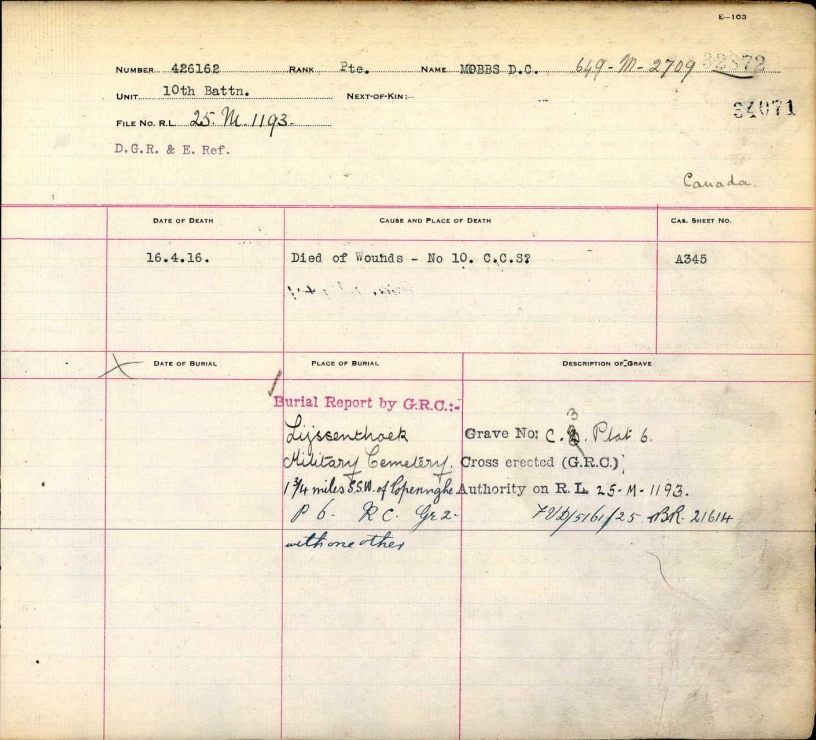 E—103
NUMBER 426162 RANK Pte. NAME MOBBS D.C. 649-M-2709 32372
UNIT 10th Battn. NEXT-OF-KIN:—
34071
FILE NO. R.L. 25. M. 1193.
D.G.R. & E. Ref.
Canada.
DATE OF DEATH CAUSE AND PLACE OF DEATH CAS. SHEET NO.
16.4.16. Died of Wounds - No 10. C.C.S? A345
DATE OF BURIAL PLACE OF BURIAL DESCRIPTION OF GRAVE
Burial Report by G.R.C.:-
Lijssenthoek Grave No: C. 3 Plot 6.
Military Cemetery. Cross erected (G.R.C.)
1 3/4 miles S.S.W. of Poperinghe Authority on R.L. 25-M-1193.
P 6. R C. Gr 2- /5161/25 BR. 21614
with one other